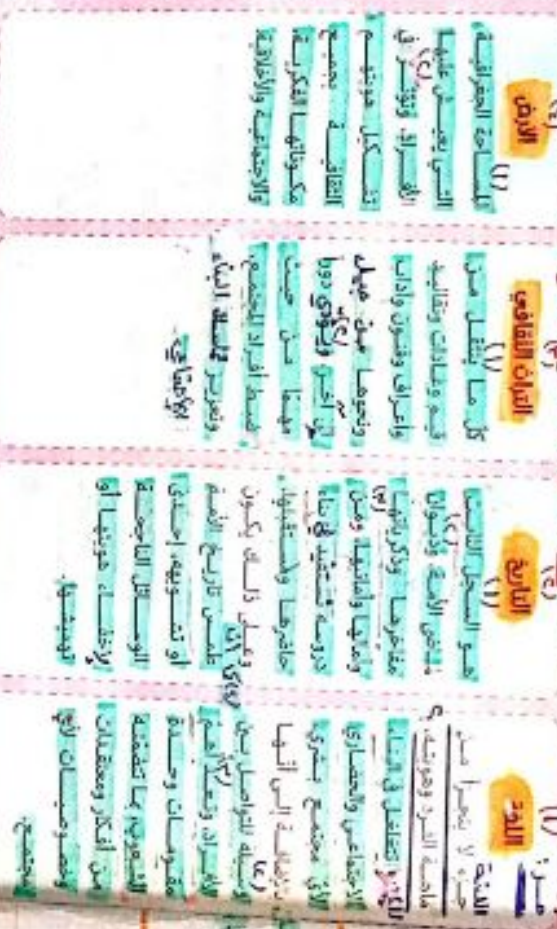 اللغة
جزء لا يتجزأ من
ماهية الفرد وهويته
تتغلغل في البناء
الاجتماعي والحضاري
لأي مجتمع بشري
إضافة إلى أنها
وسيلة للتواصل بين (٢)
الأفراد وتعد أهم (٣)
مقومات وحدة
الشعوب بما تتضمنه
من أفكار ومعتقدات
وخصوصيات لأي
مجتمع.
التاريخ
(١)
هو السجل الثابت
(٢)
لماضي الأمة وديوان
مفاخرها وذكرياتها
(٣)
وآمالها وأمانيها ومن
دروسه تستفيد في بناء
حاضرها ومستقبلها،
وعلى ذلك يكون
طمس تاريخ الأمة
أو تشويهه، إحدى
الوسائل الناجحة
لإخفاء هويتها أو
تهميشها.
(٣)
التراث الثقافي
(١)
كل ما ينتقل من
قيم وعادات وتقاليد
وأعراف وفنون وآداب
ونحوها من جيل
إلى آخر ويؤدي دورا
(٢)
مهما من حيث
ضبط أفراد المجتمع
وتعزيز تماسك البناء
الاجتماعي.
الأرض
(١)
المساحة الجغرافية
التي يعيش عليها
(٢)
الأفراد وتؤثر في
تشكيل هويتهم
الثقافية بجميع
مكوناتها الفكرية
والاجتماعية والأخلاقية